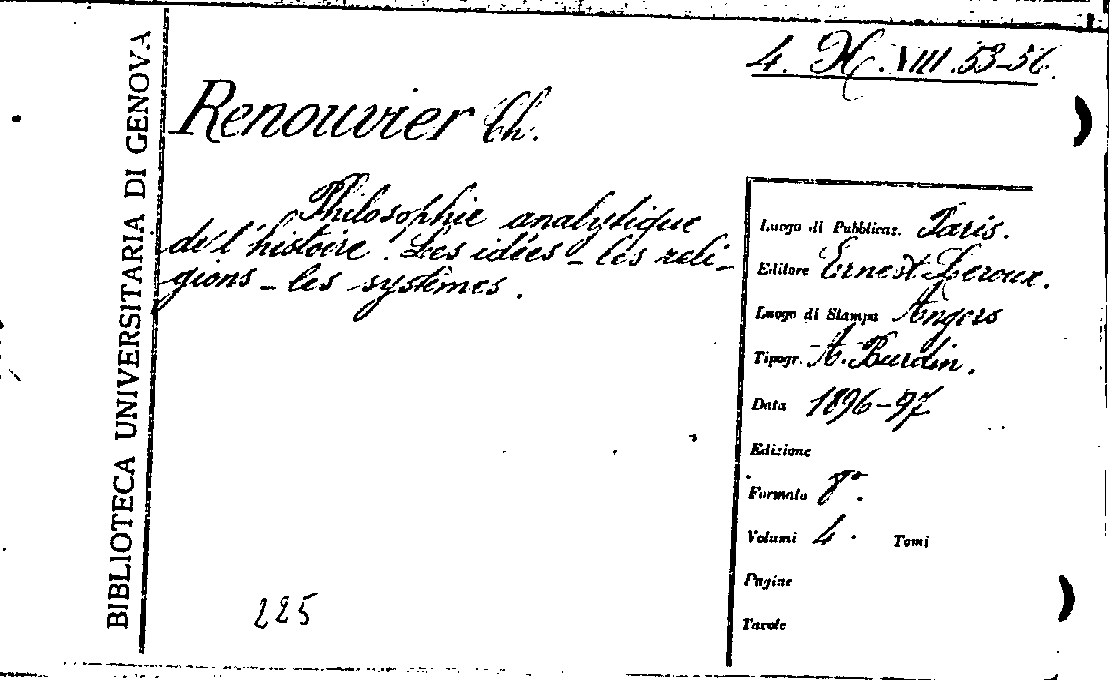 BIBLIOTECA UNIVERSITARIA DI GENOVA
4. H. XIII. 53-56.
Renouvier Ch.
Philosophie analytique
de l'histoire. Les idées - les reli-
gions - les systèmes.
Luogo di Pubblicaz. Paris.
Editore Ernest Leroux.
Luogo di Stampa Angers
Tipogr. A. Burdin.
Data 1896-97
Edizione
Formato 8°.
Volumi 4. Tomi
Pagine
Tavole
225